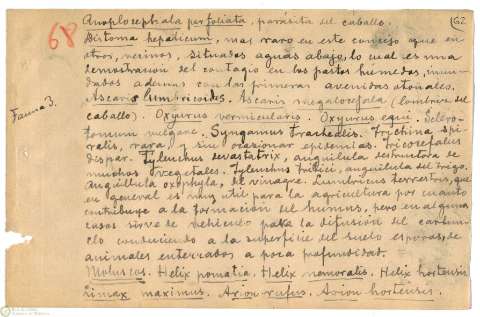 162
68
Anoplocephala perfoliata, parásita del caballo.
Distoma hepaticum, mas raro en este concejo que en
otros, vecinos, situados aguas abajo, lo cual es una
demostración del contagio en los pastos humedos, inun-
dados ademas con las primeras avenidas otoñales.
Fauna 3.
Ascaris lumbricoides. Ascaris megalocefala (lombriz del
caballo). Oxyurus vermicularis. Oxyurus equi. Sclero-
tomum vulgare. Syngamus trachealis. Trychina spi-
ralis, rara, y sin ocasionar epidemias. Tricocefalus
dispar. Tylenchus devastatrix, anguilula destructora de
muchos vegetales. Tylenchus tritici, anguilula del trigo.
Anguilula oxophyla, del vinagre. Lumbricus terrestris, que
en general es muy util para la agricultura por cuanto
contribuye a la formación del humus, pero en algunos
casos sirve de vehiculo para la difusión del carbun-
clo conduciendo a la superficie del suelo esporas, de
animales enterrados a poca profundidad.
Moluscos. Helix pomatia. Helix nemoralis. Helix hortensis
Limax maximus. Arion rufus. Arion hortensis.